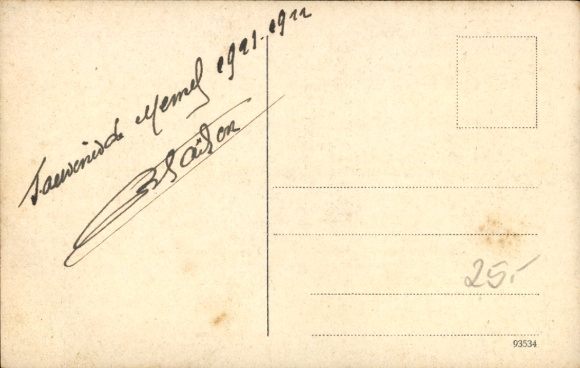 Souvenir de Memel 1921-1922
25.-
93534